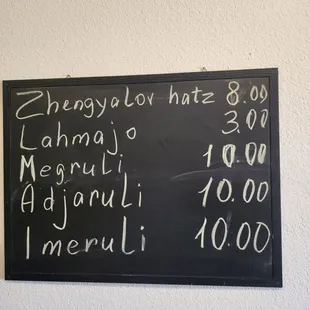 Zhengyalov hatz 8.00
Lahmajo 3.00
Megruli 10.00
Adjaruli 10.00
Imeruli 10.00